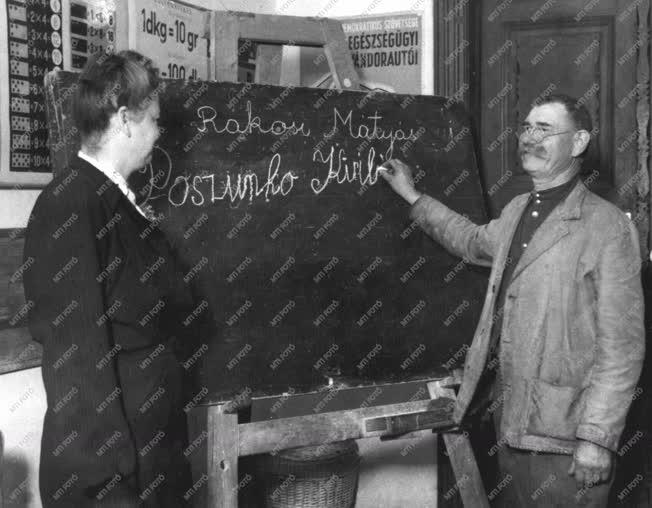 1dkg=10 gr
DEMOKRATIKUS SZÖVETSÉGE
EGÉSZSÉGÜGYI
VÁNDORAUTÓI
Rakosi Mátyás
Poszunko
MTI FOTÓ